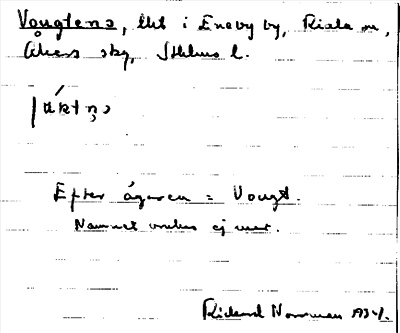 Vougtens, lht i Eneby by, Riala sn,
Åkers skg, Sthlms l.
Efter ägaren = Vougt.
Namnet brukas ej mer.
Rickard Norrman 1934.